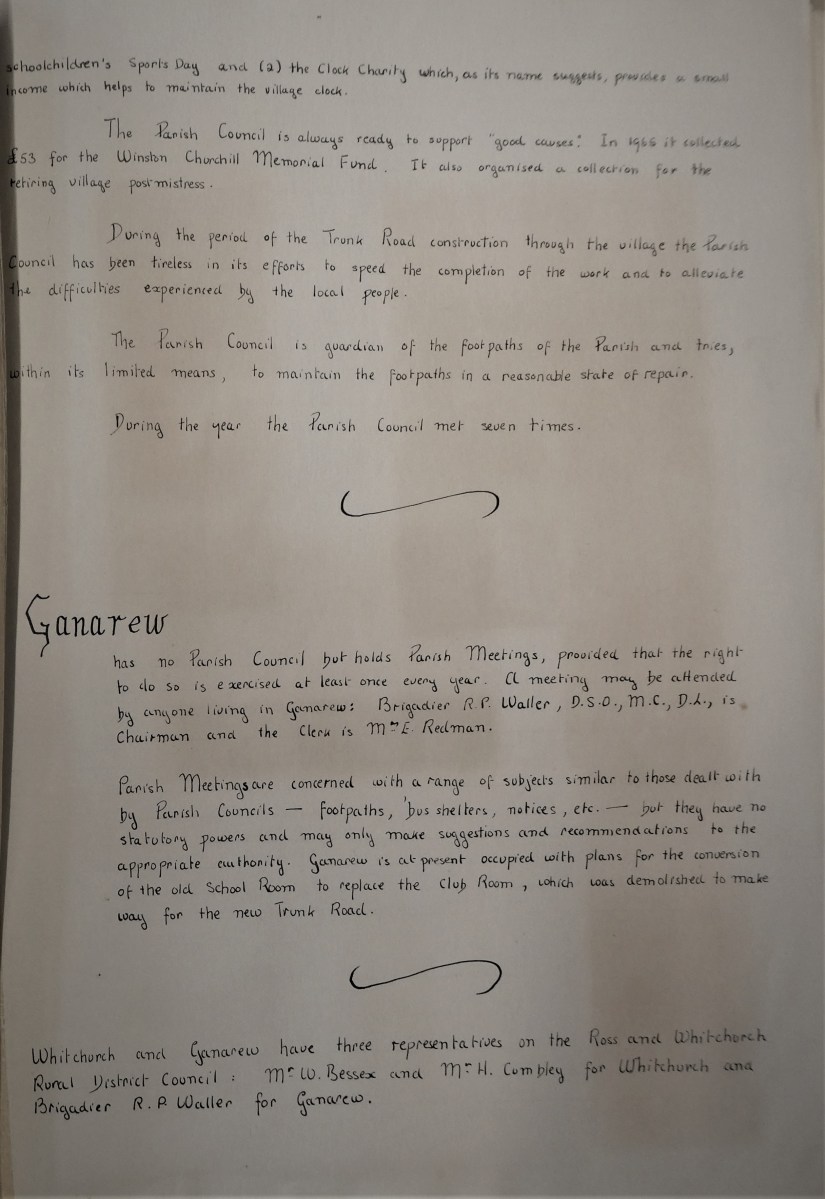 schoolchildren's Sports Day and (2) the Clock Charity which, as its name suggests, provides a small
income which helps to maintain the village clock.
The Parish Council is always ready to support "good causes". In 1966 it collected
£53 for the Winston Churchill Memorial Fund. It also organised a collection for the
retiring village postmistress.
During the period of the Trunk Road construction through the village the Parish
Council has been tireless in its efforts to speed the completion of the work and to alleviate
the difficulties experienced by the local people.
The Parish Council is guardian of the footpaths of the Parish and tries,
within its limited means, to maintain the footpaths in a reasonable state of repair.
During the year the Parish Council met seven times.
Ganarew
has no Parish Council but holds Parish Meetings, provided that the right
to do so is exercised at least once every year. A meeting may be attended
by anyone living in Ganarew: Brigadier R.P. Waller, D.S.O., M.C., D.L., is
Chairman and the Clerk is Mrs E. Redman.
Parish Meetings are concerned with a range of subjects similar to those dealt with
by Parish Councils — footpaths, bus shelters, notices, etc. — but they have no
statutory powers and may only make suggestions and recommendations to the
appropriate authority. Ganarew is at present occupied with plans for the conversion
of the old School Room to replace the Club Room, which was demolished to make
way for the new Trunk Road.
Whitchurch and Ganarew have three representatives on the Ross and Whitchurch
Rural District Council: Mr W. Bessex and Mr H. Cumbley for Whitchurch and
Brigadier R.P. Waller for Ganarew.